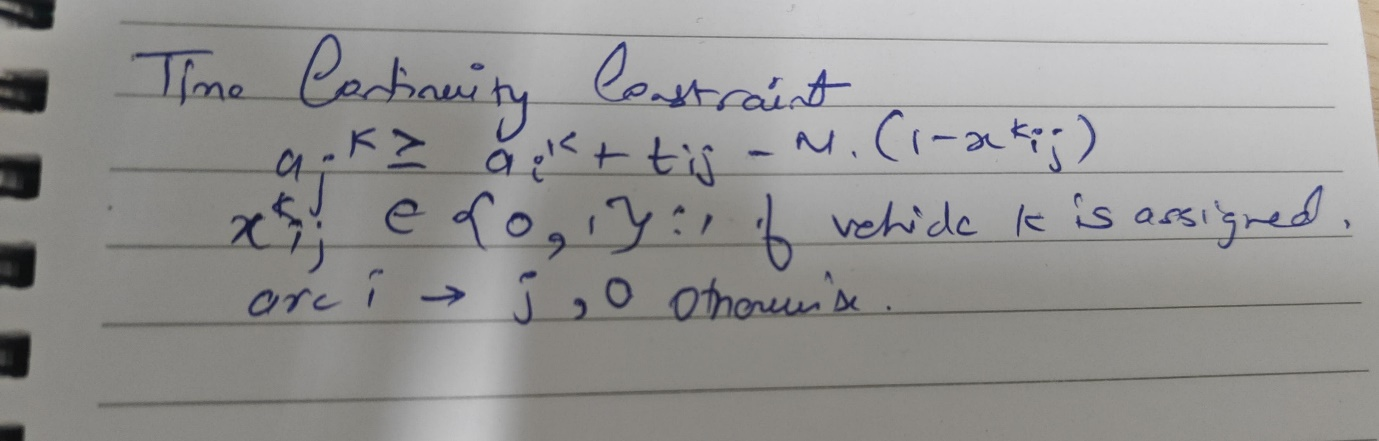 Time Continuity Constraint
a_j^k ≥ a_i^k + t_ij - M. (1-x^k_ij)
x^k_ij ∈ {0,1}: 1 if vehicle k is assigned.
arc i → j, 0 otherwise.